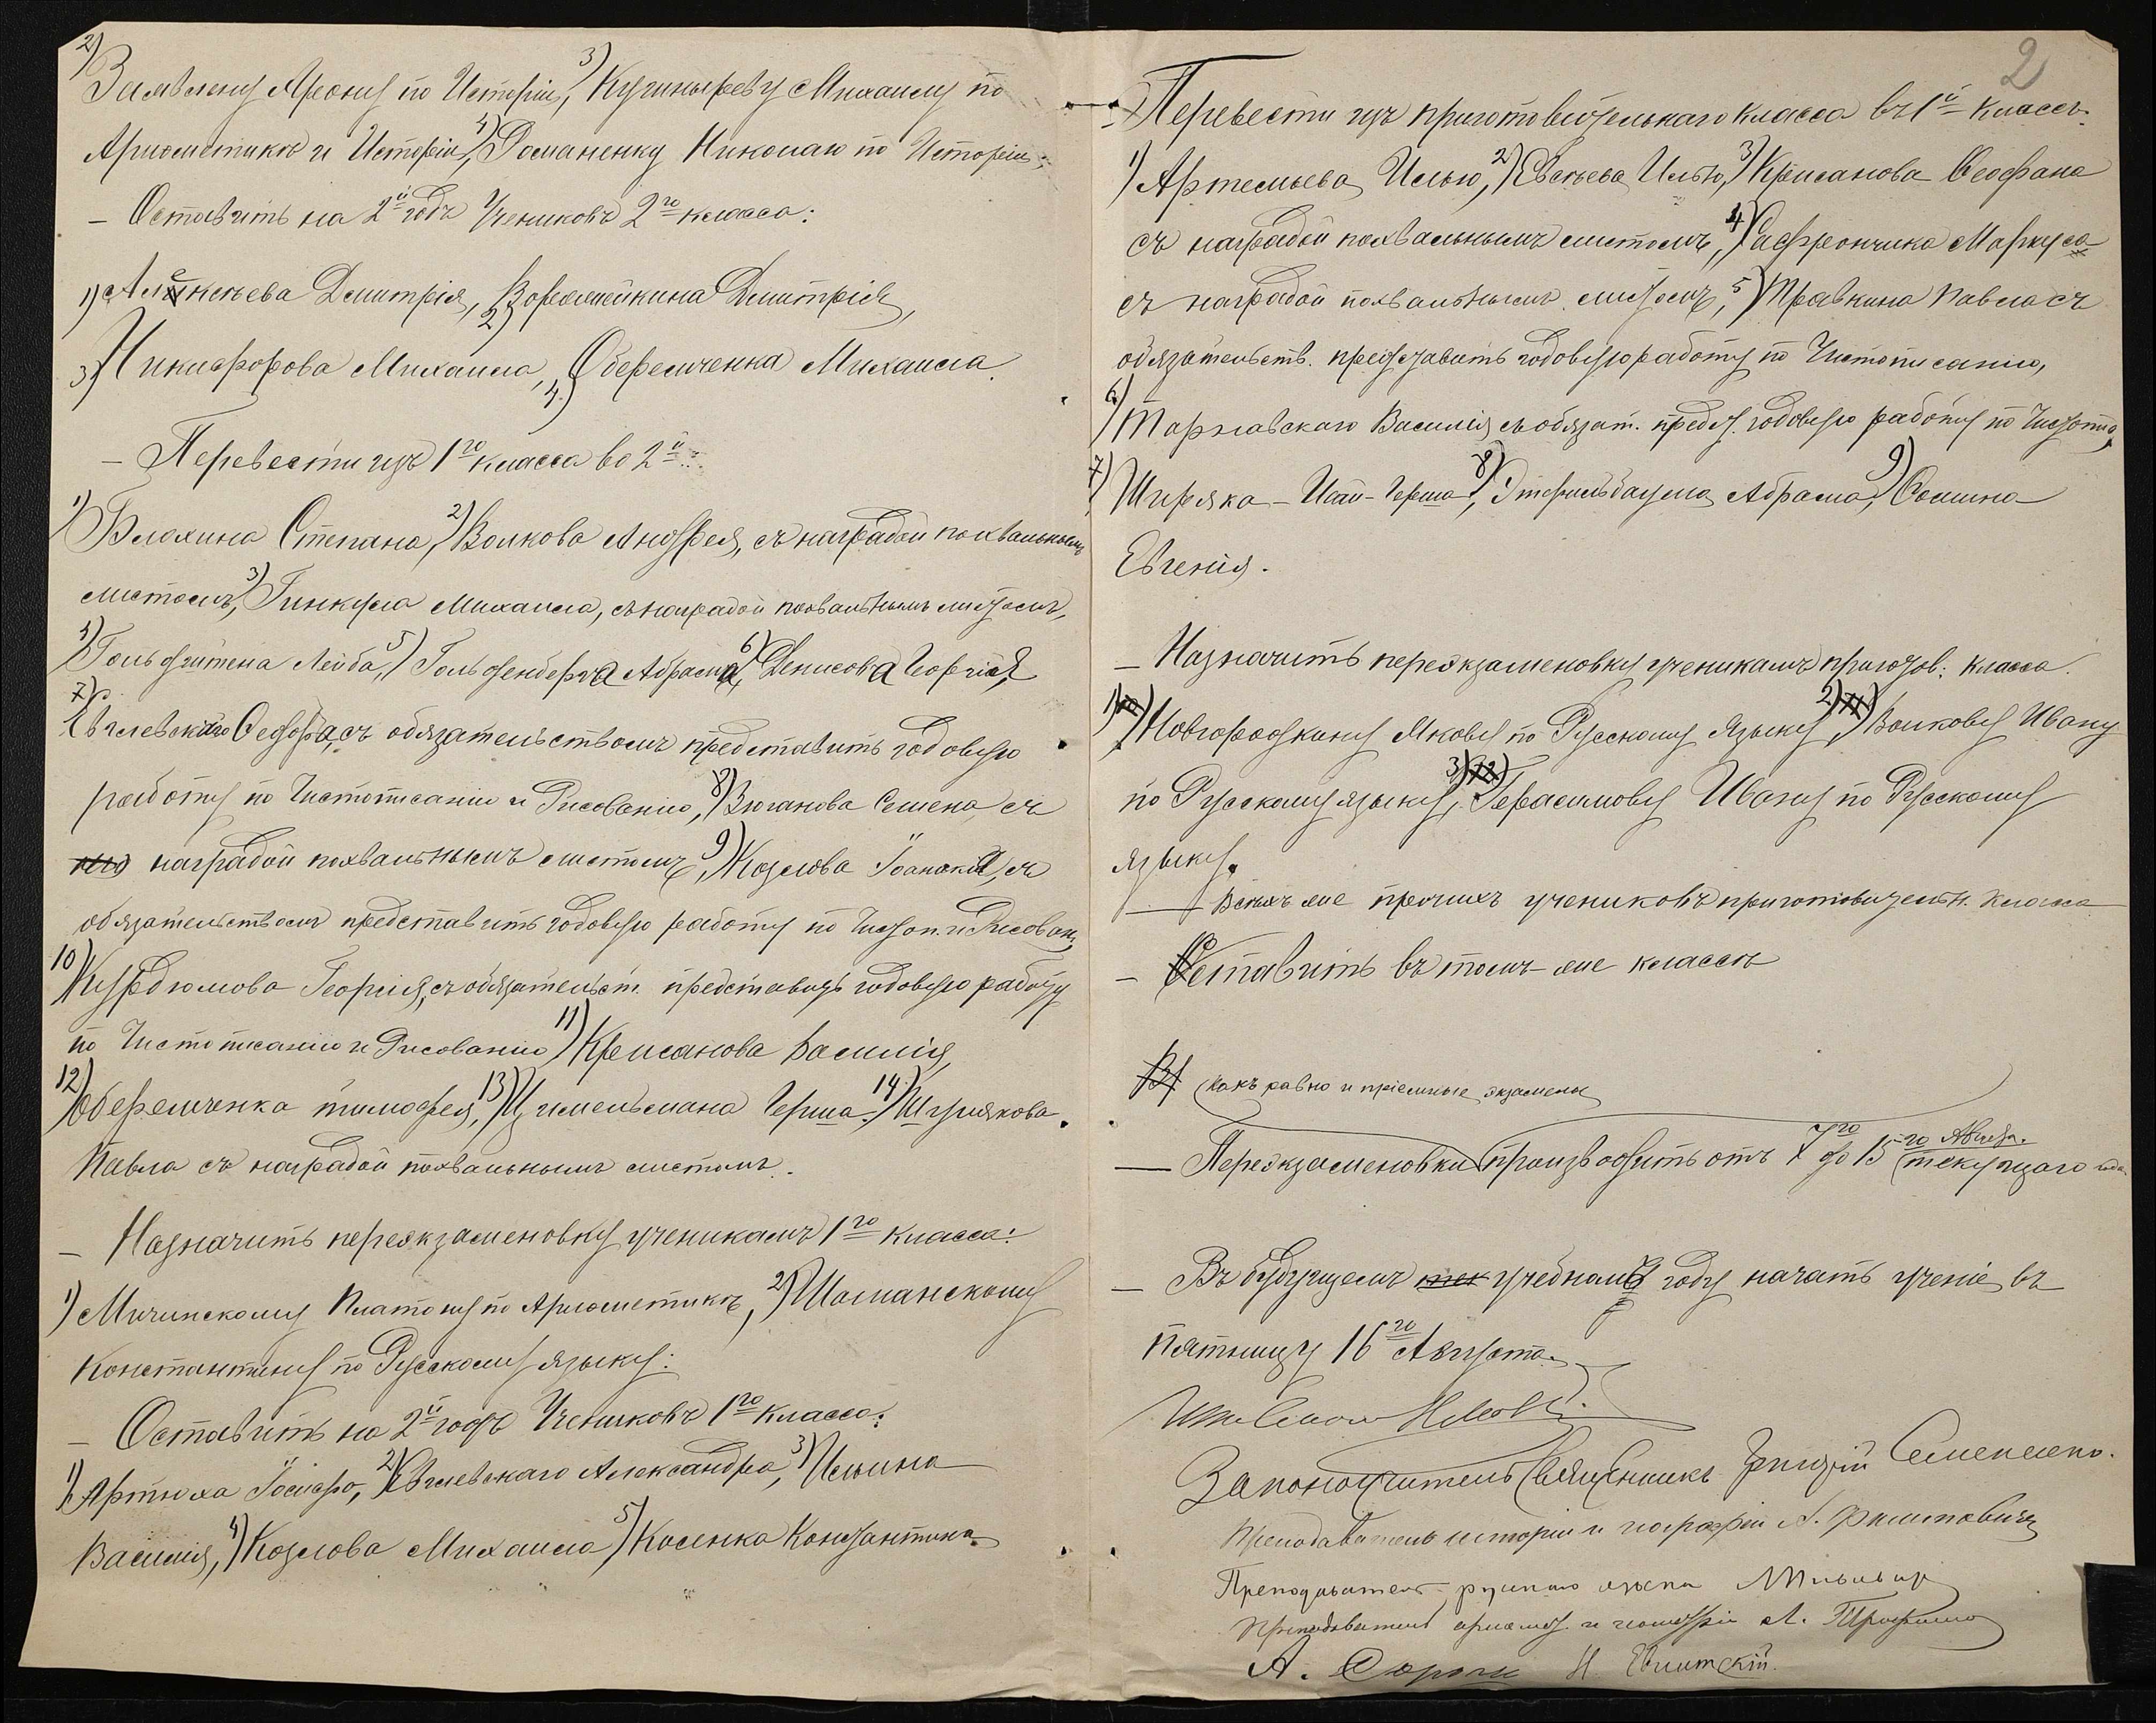 2) Зимвлену Арону по Исторіи, 3) Кугиныреву Михаилу по
Ариѳметикѣ и Исторіи, 4) Романенку Николаю по Исторіи;
— Оставить на 2й годъ Учениковъ 2го класса:
1) Алексѣева Димитрія, 2) Воромейкина Димитрія,
3) Никифорова Михаила, 4) Оберемченка Михаила.
— Перевести изъ 1го класса во 2й:
1) Блохина Степана, 2) Волкова Андрея, съ наградой похвальнымъ
листомъ, 3) Гинкула Михаила, съ наградой похвальнымъ листомъ,
4) Гольдштена Лейба, 5) Гольденберга Абрама, 6) Денисова Георгія,
7) Евглевскаго Ѳедора, съ обязательствомъ представить годовую
работу по Чистописанію и Рисованію, 8) Зюганова Семена съ
наградой похвальнымъ листомъ, 9) Козлова Іоаникія, съ
обязательствомъ представить годовую работу по Чистоп. и Рисован.,
10) Курдюмова Георгія, съ обязательст. представить годовую работу
по Чистописанію и Рисованію 11) Крисанова Василія,
12) Оберемченка Тимоѳея, 13) Цимельмана Герша. 14) Ширякова
Павла съ наградой похвальнымъ листомъ.
— Назначить переэкзаменовку ученикамъ 1го класса:
1) Мичинскому Платону по Ариѳметикѣ, 2) Шоманскому
Константину по Русскому языку:
— Оставить на 2й годъ Учениковъ 1го класса:
1) Артюха Іосифа, 2) Евглевскаго Александра, 3) Ильина
Василія, 4) Козлова Михаила 5) Косенка Константина.
2
— Перевести изъ приготовительнаго класса въ 1й классъ.
1) Артемьева Илью, 2) Евсѣева Илью, 3) Крисанова Ѳеофана
съ наградой похвальнымъ листомъ, 4) Сафрончика Маркуса
съ наградой похвальнымъ листомъ, 5) Травкина Павла съ
обязательств. представить годовую работу по Чистописанію,
6) Таржавскаго Василія съ обязат. предст. годовую работу по Чистопис.,
7) Ширяка - Герша, 8) Абрама, 9) Ѳомина
Евгенія.
— Назначить переэкзаменовку ученикамъ приготов. класса.
1) Новгородкину Якову по Русскому Языку, 2) Волкову Ивану
по Русскому языку, 3) Герасимову Ивану по Русскому
языку.
— Всѣхъ же прочихъ учениковъ приготовительн. класса
— Оставить въ томъ-же классѣ
какъ равно и пріемные экзамены
— Переэкзаменовки производить отъ 7го до 15го Августа. текущаго года.
— Въ будущемъ учебномъ году начать ученіе въ
пятницу 16го Августа.
Законоучитель Священникъ Григорій Семененко.
Преподаватель исторіи и географіи А. Филиповичъ
Преподаватель русскаго языка
Преподаватель ариѳмет. и геометріи А. Трофимо
А. Сорок Н. Евлитскій.